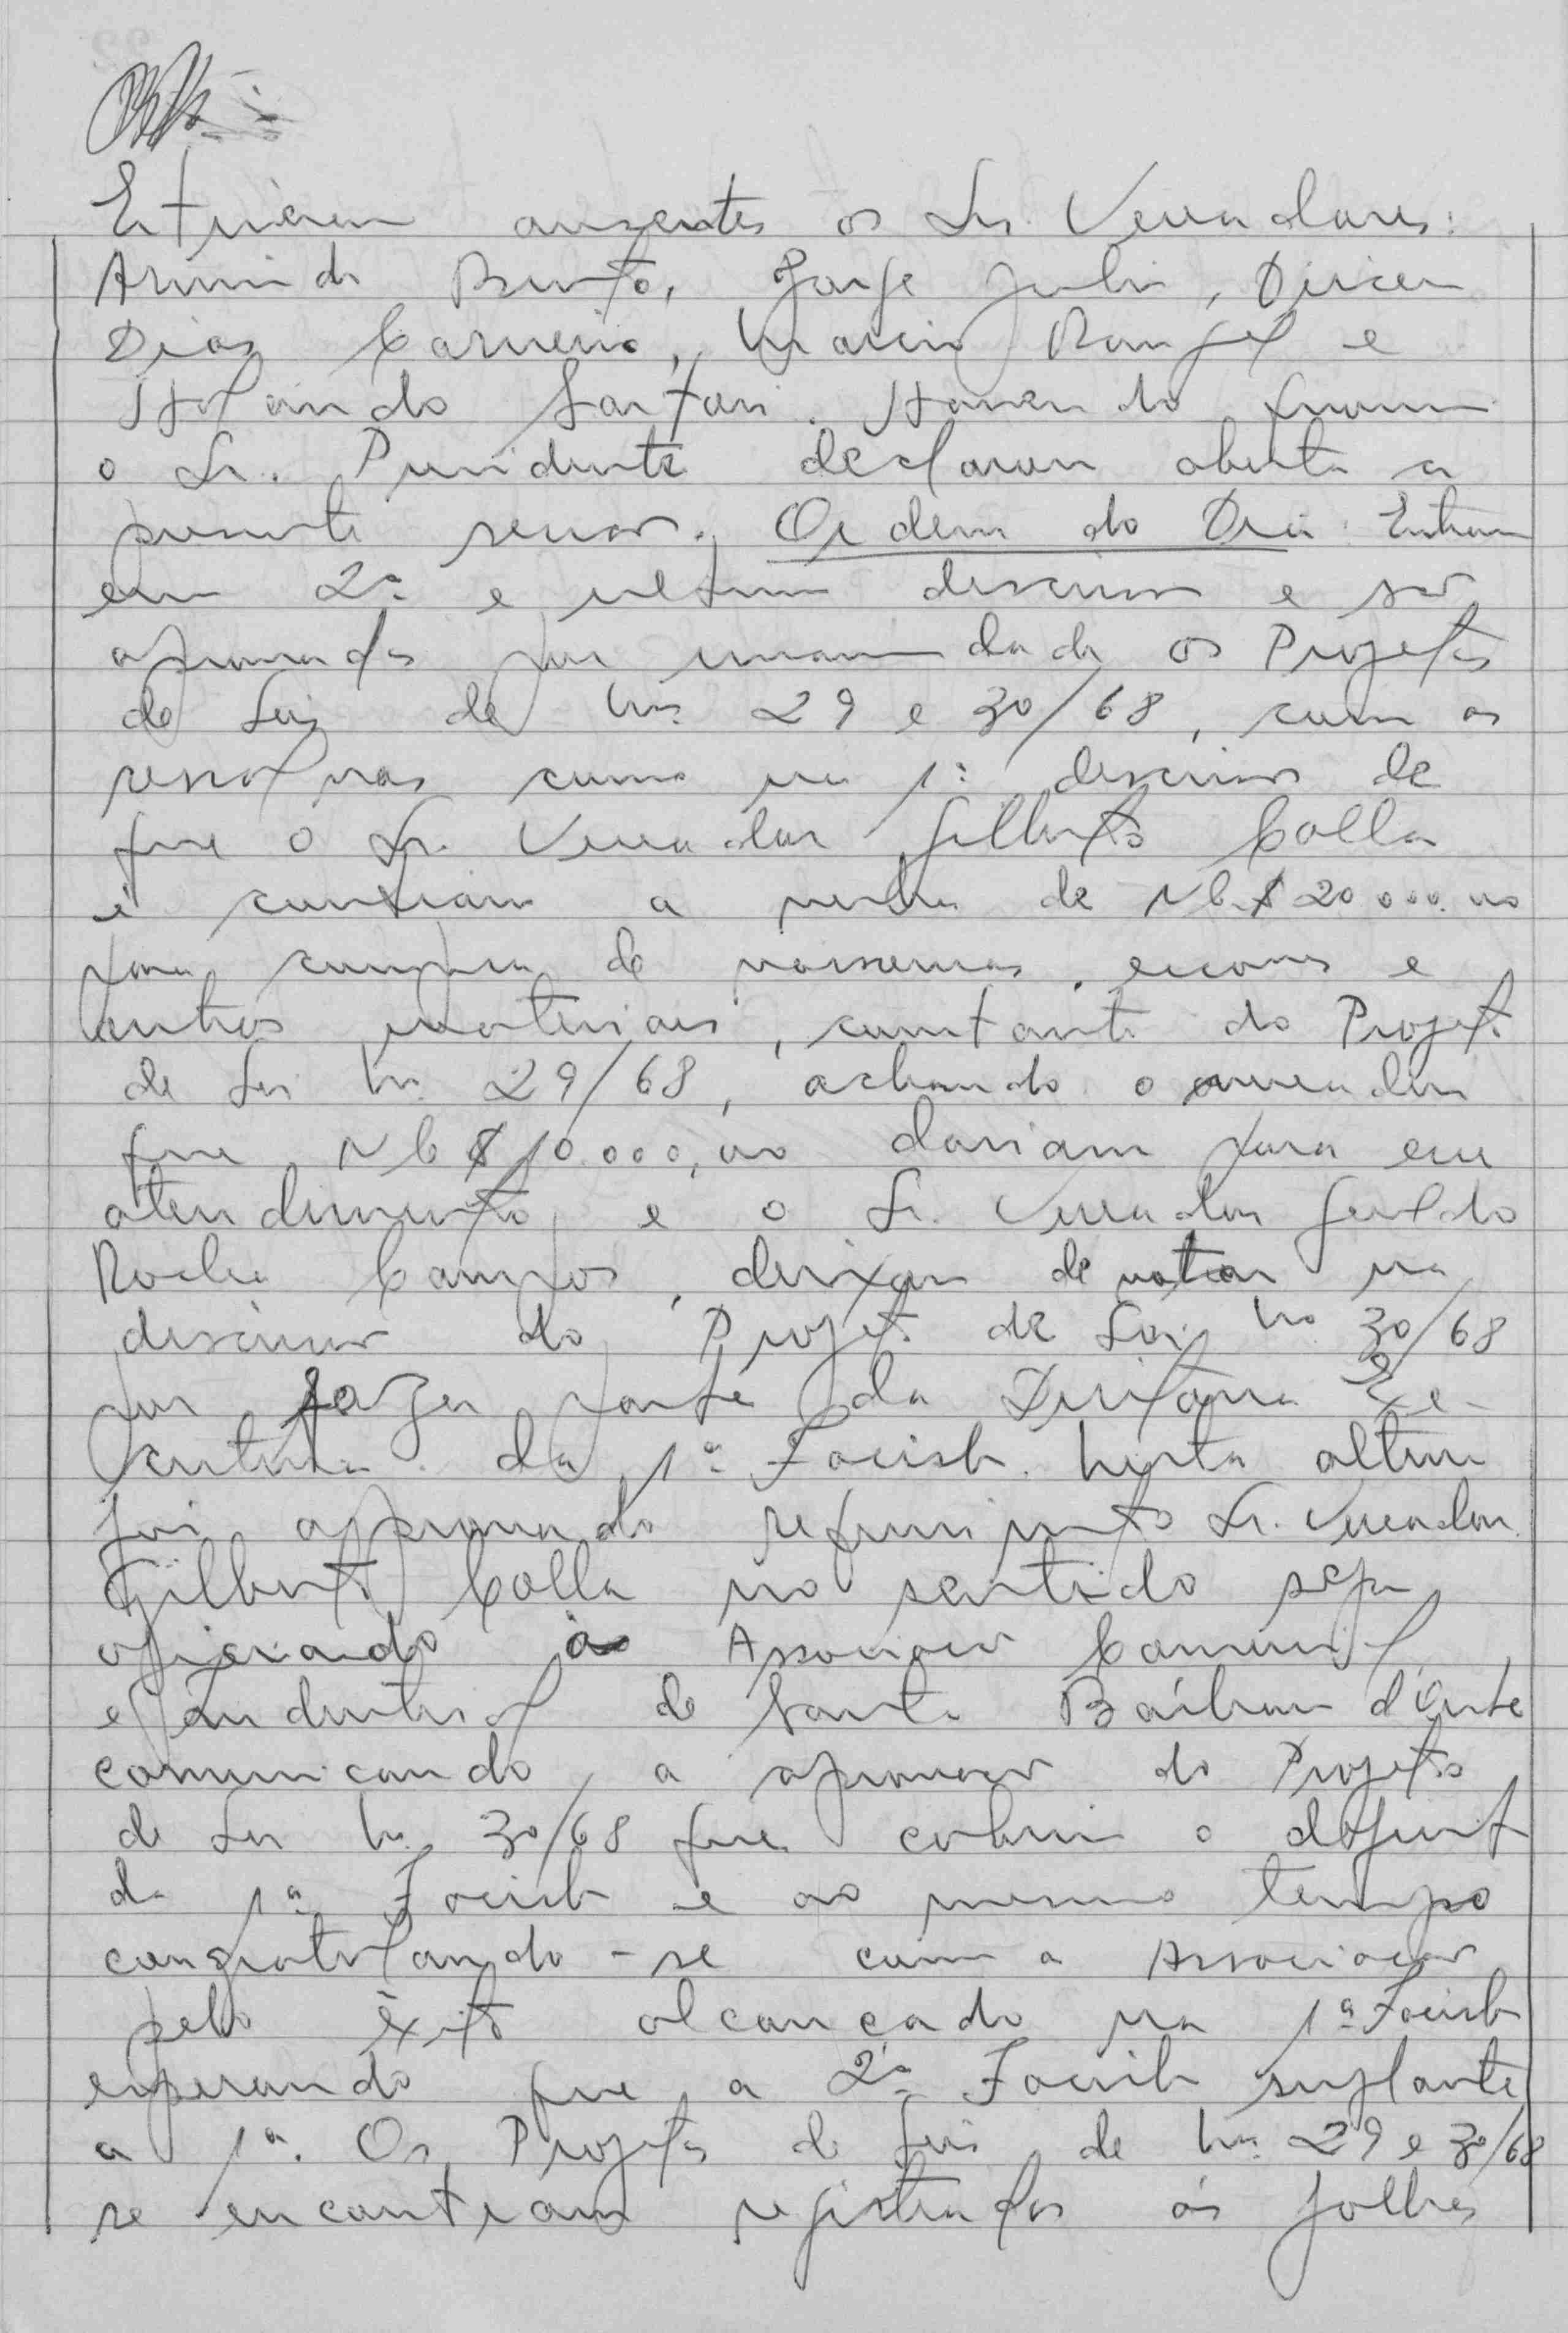 Estiveram ausentes os Srs. Vereadores:
Armindo Bento, Jorge Julio, Dirceu
Dias Carneiro, Marcio Rangel e
Holando Sartori. Havendo quorum
o Sr. Presidente declarou aberta a
presente sessão. Ordem do Dia: Entram
em 2ª e ultima discussão e são
aprovados por unanimidade os Projetos
de Leis de nos. 29 e 30/68, com as
ressalvas como na 1ª discussão de
que o Sr. Vereador Gilberto Colla
é contrario a verba de NCr$ 20.000,00
para compra de vassouras, escovas e
outros materiais, constante do Projeto
de Lei no. 29/68, achando o vereador
que NCr$ 10.000,00 dariam para
atendimento e o Sr. Vereador Geraldo
Rocha Campos, deixou de votar na
discussão do Projeto de Lei no. 30/68
por fazer parte da Diretoria Exe-
cutiva da 1ª Facisb. Nesta altura
foi aprovado requerimento Sr. Vereador
Gilberto Colla no sentido seja
oficiando à Associação Comercial
e Industrial de Santa Bárbara d'Oeste
comunicando a aprovação do Projeto
de Lei no. 30/68 que cobrirá o deficit
da 1ª Facisb e ao mesmo tempo
congratulando-se com a Associação
pelo êxito alcançado na 1ª Facisb
esperando que a 2ª Facisb suplante
a 1ª. Os Projetos de Leis de nos. 29 e 30/68
se encontram registrados ás folhas